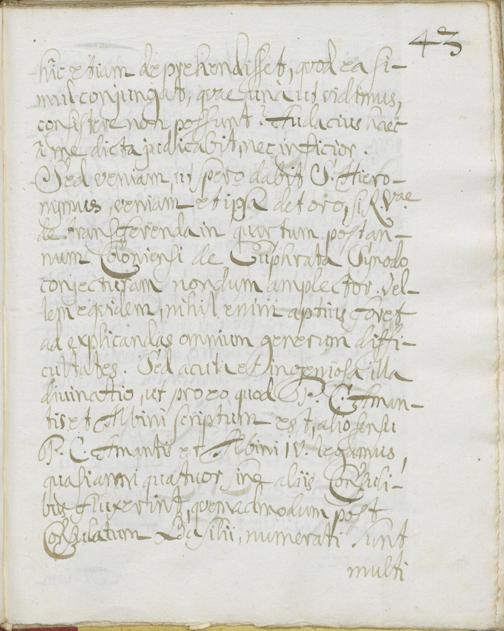 43
hic etiam deprehendisset, quod ea si-
mul conjungat, quae una, ut vidimus,
consistere non possunt? Audacius haec
a me dicta judicabit, nec inficior.
Sed veniam, ut spero dabit S. Hiero-
nymus, veniam et ipsa
de transferenda in quartum post an-
num Coloniensi de Euphrata Synodo
conjecturam nondum amplector. Vel-
lem equidem, nihil enim aptius foret
ad explicandas omnium generum diffi-
cultates. Sed acuta et ingeniosa illa
divinatio, ut pro eo quod P. C. Aman-
tis et Albini scriptum est, alio sensu
P. C. Amantis et Albini IV. legamus,
quasi anni quatuor sine aliis Consuli-
bus fluxerint, quemadmodum post
Consulatum Basilii, numerati sunt
multi